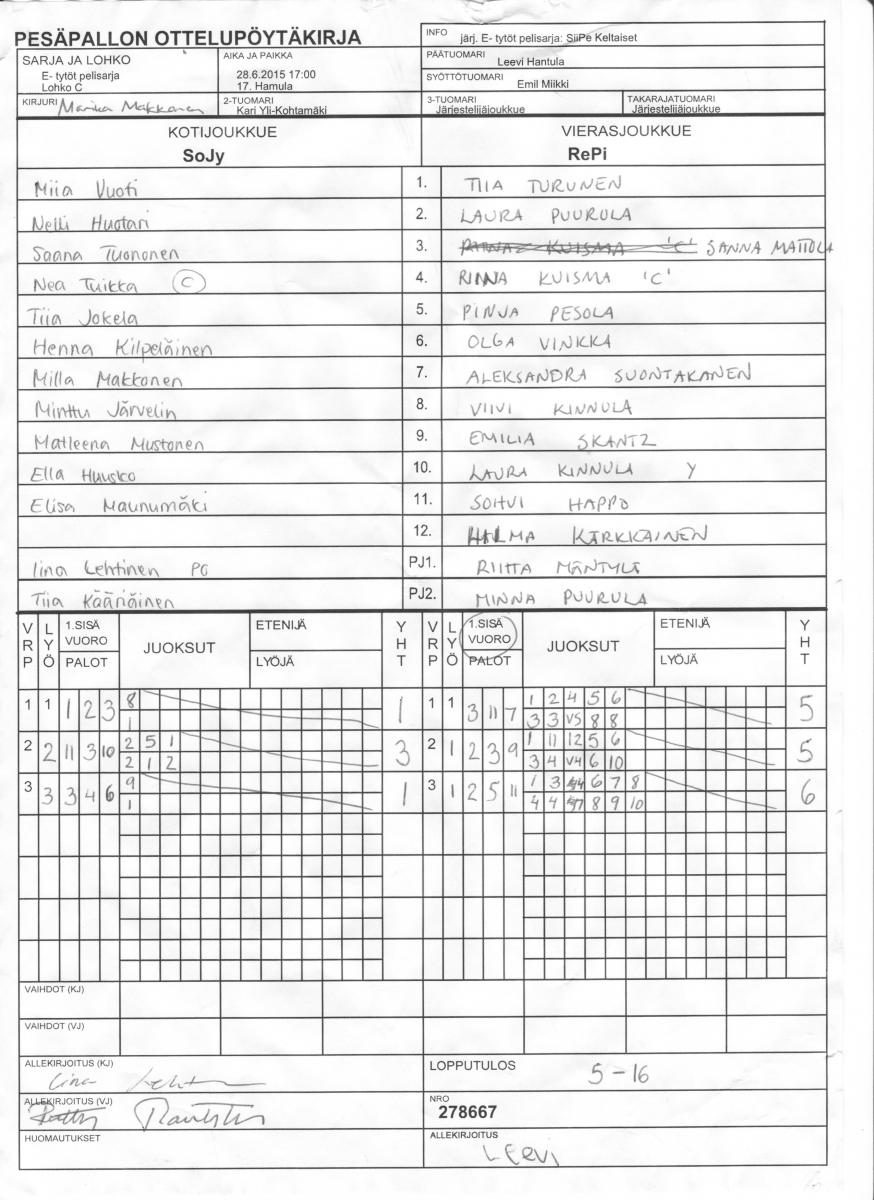 PESÄPALLON OTTELUPÖYTÄKIRJA
INFO järj. E- tytöt pelisarja: SiiPe Keltaiset
SARJA JA LOHKO
E- tytöt pelisarja
Lohko C
AIKA JA PAIKKA
28.6.2015 17:00
17. Hamula
PÄÄTUOMARI
Leevi Hantula
SYÖTTÖTUOMARI
Emil Miikki
KIRJURI Marika Makkonen
2-TUOMARI
Kari Yli-Kohtamäki
3-TUOMARI
Järjestelijäjoukkue
TAKARAJATUOMARI
Järjestelijäjoukkue
KOTIJOUKKUE VIERASJOUKKUE
SoJy RePi
Miia Vuoti 1. TIIA TURUNEN
Nelli Huotari 2. LAURA PUURULA
Saana Tuononen 3. SANNA MATTOLA
Nea Tuikka C 4. RINNA KUISMA 'C'
Tiia Jokela 5. PINJA PESOLA
Henna Kilpeläinen 6. OLGA VINKKA
Milla Makkonen 7. ALEKSANDRA SUONTAKANEN
Minttu Järvelin 8. VIIVI KINNULA
Matleena Mustonen 9. EMILIA SKANTZ
Ella Huusko 10. LAURA KINNULA Y
Elisa Maunumäki 11. SOHVI HAPPO
12. HILMA KÄRKKÄINEN
Iina Lehtinen PJ1. RIITTA MÄNTYLÄ
Tiia Kääriäinen PJ2. MINNA PUURULA
VRP LYÖ 1.SISÄ VUORO PALOT JUOKSUT ETENIJÄ LYÖJÄ YHT VRP LYÖ 1.SISÄ VUORO PALOT JUOKSUT ETENIJÄ LYÖJÄ YHT
1 1 1 2 3 8 1 1 1 3 11 7 1 2 4 5 6 5
1 3 3 V5 8 8
2 2 11 3 10 2 5 1 3 2 1 2 3 9 1 11 12 5 6 5
2 1 2 3 4 V4 6 10
3 3 3 4 6 9 1 3 1 2 5 11 1 3 4 6 7 8 6
1 4 4 7 8 9 10
VAIHDOT (KJ)
VAIHDOT (VJ)
ALLEKIRJOITUS (KJ)
Iina Leht
LOPPUTULOS 5-16
ALLEKIRJOITUS (VJ)
NRO
278667
HUOMAUTUKSET
ALLEKIRJOITUS
LEEVI